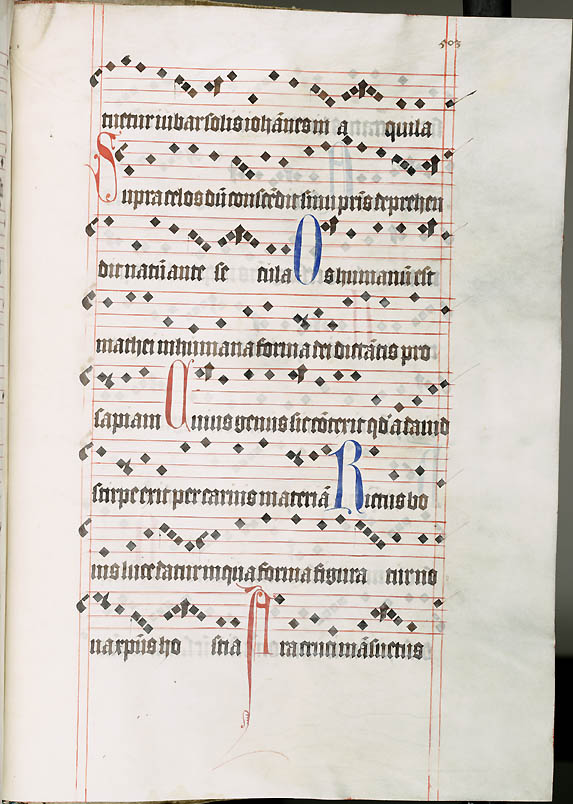 503
tuetur iubar solis ioha̅nes in a quila
Supra celos du̅ conſce̅dit ſu̅mi pr̅is deprehen
dit natu̅ ante ſe cula Os humanu̅ eſt
mathei in humana forma dei dicta̅tis pro
ſapiam Cuius genus ſic co̅texit qd' a dauid
ſtirpe exit per carnis materia̅ Rictus bo
uis luce datur in qua forma figura tur no
ua xp̅us ho ſtia Ara crucis ma̅ſuetus